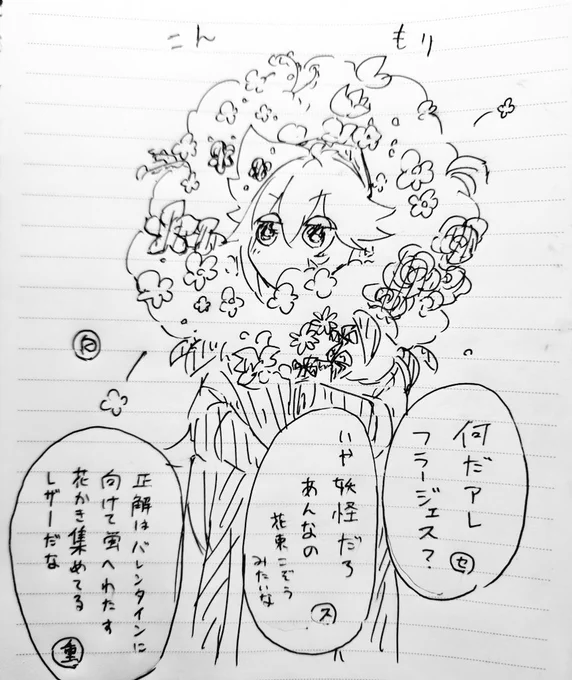 こんもり
何だアレ
フラージェス?
セ
いや妖怪だろ
あんなの
花束こぞう
みたいな
ス
正解はバレンタインに
向けて蛍へわたす
花かき集めてる
レザーだな
重
R